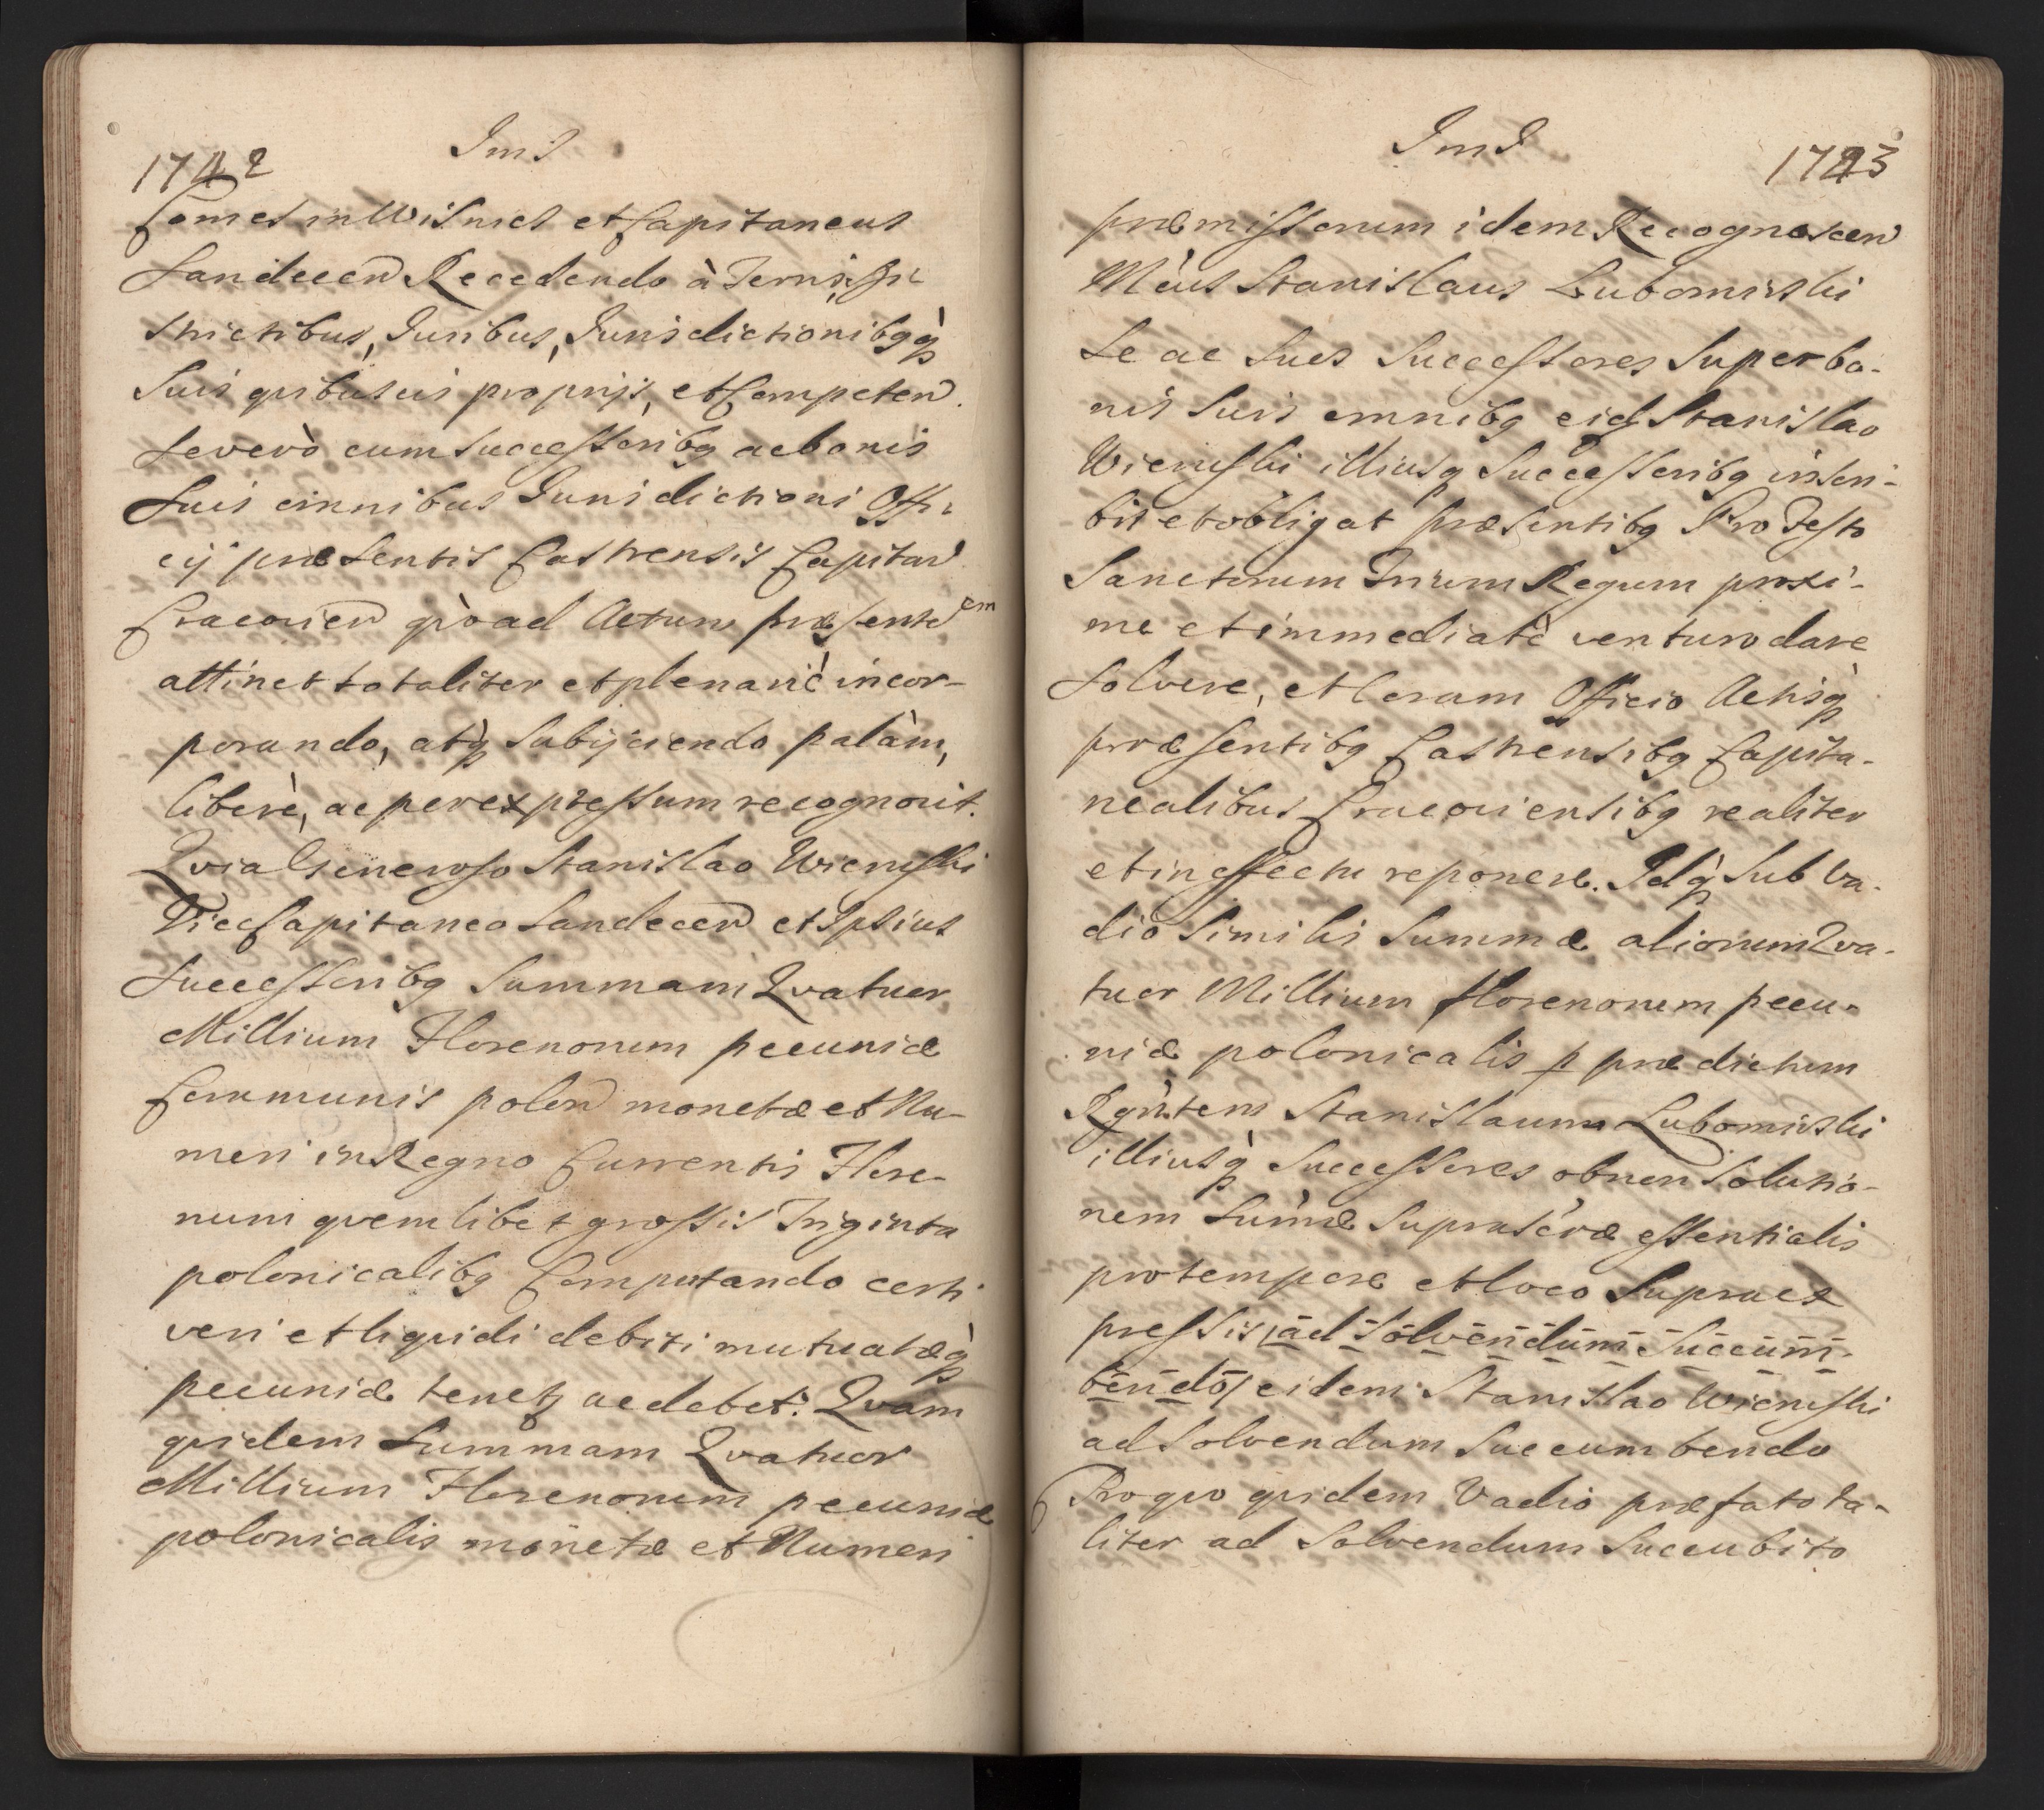 1742
Ims
Comes in Wisnicz et Capitaneus
Sandecen Recedendo à Terris, Di-
strictibus, Iuribus, Iurisdictionibqq
Suis quibusvis proprijs, et Competen.
Se verò cum Successoribq ac bonis
Suis omnibus Iurisdictioni Offi-
cij præsentis Castrensis Capitan
Cracovien qvoad Actum præsentem
attinet totaliter et plenariè incor-
porando, atq Subijciendo, palàm,
liberè, ac per expressum recognovit.
Qvia Generoso Stanislao Wierusski
ViceCapitaneo Sandecen et Ipsius
Successoribq Summam Qvatuor
Millium Florenorum pecuniæ
Communis polon monetæ et Nu-
meri in Regno Currentis Flore-
num qvemlibet grossis Triginta
polonicalibq Computando certi
veri et liqvidi debiti mutuatæq
pecuniæ tenetq ac debet. Qvam
qvidem Summam Qvatuor
Millium Florenorum pecuniæ
polonicalis monetæ et Numeri
Ims
1743
præmissorum idem Recognoscen
Mcus Stanislaus Lubomirski
Se ac Suos Successores Super bo-
nis Suis omnibq eid Stanislao
Wierusski illiusq Successoribq inscri-
bit et obligat præsentibq Pro Festo
Sanctorum Trium Regum proxi-
me et immediatè venturo dare
Solvere, et Coram Officio Actisq
præsentibq Castrensibq Capita-
nealibus Cracoviensibq realiter
et in effectu reponere. Idq Sub Va-
dio Similis Summæ aliorum Qva-
tuor Millium florenorum pecu-
niæ polonicalis p prædictum
Rgntem Stanislaum Lubomirski
illiusq Successores ob non Solutio-
nem Sumæ Suprascræ essentialis
pro tempore et loco Supraex
pressis /ad Solvendum Succum-
bendo/ eidem Stanislao Wierusski
ad Solvendum Succumbendo
Pro qvo qvidem Vadio præfato ta-
liter ad Solvendum Succubito